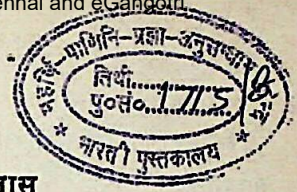 ennai and eGangotri
महर्षि-पाणिनि-प्रज्ञा-अनुसन्धा
तिथी
पु०सं० 1715
भारती पुस्तकालय
ास